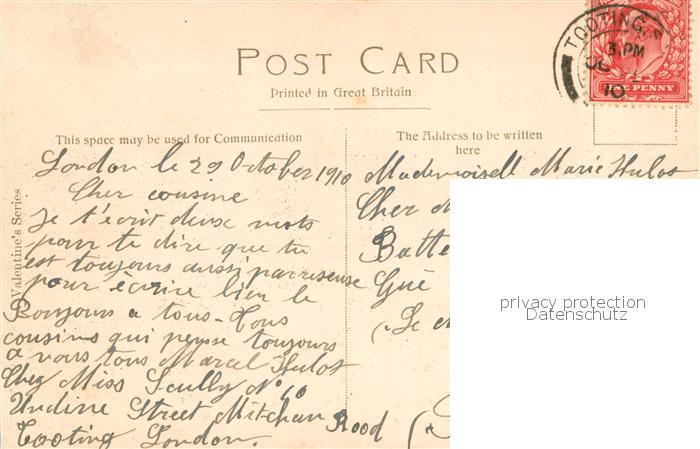 POST CARD
Printed in Great Britain
TOOTING. S
3 PM
OC
10
ONE PENNY
This space may be used for Communication
The Address to be written
here
Valentine's Series
London le 29 October 1910
Cher cousine
Je t'ecrit deux mots
pour te dire que tu
est toujours aussi parresseuse
pour écrire bien le
Bonjours a tous - Tous
cousins qui pensse toujours
a vous tous Marcel Hulot
Chez Miss Scully N° 60
Undine Street Mitchan Rood
Tooting London.
Mademoisell Marie Hulot
Cher M
Batte
Gué
(Le
(
privacy protection
Datenschutz